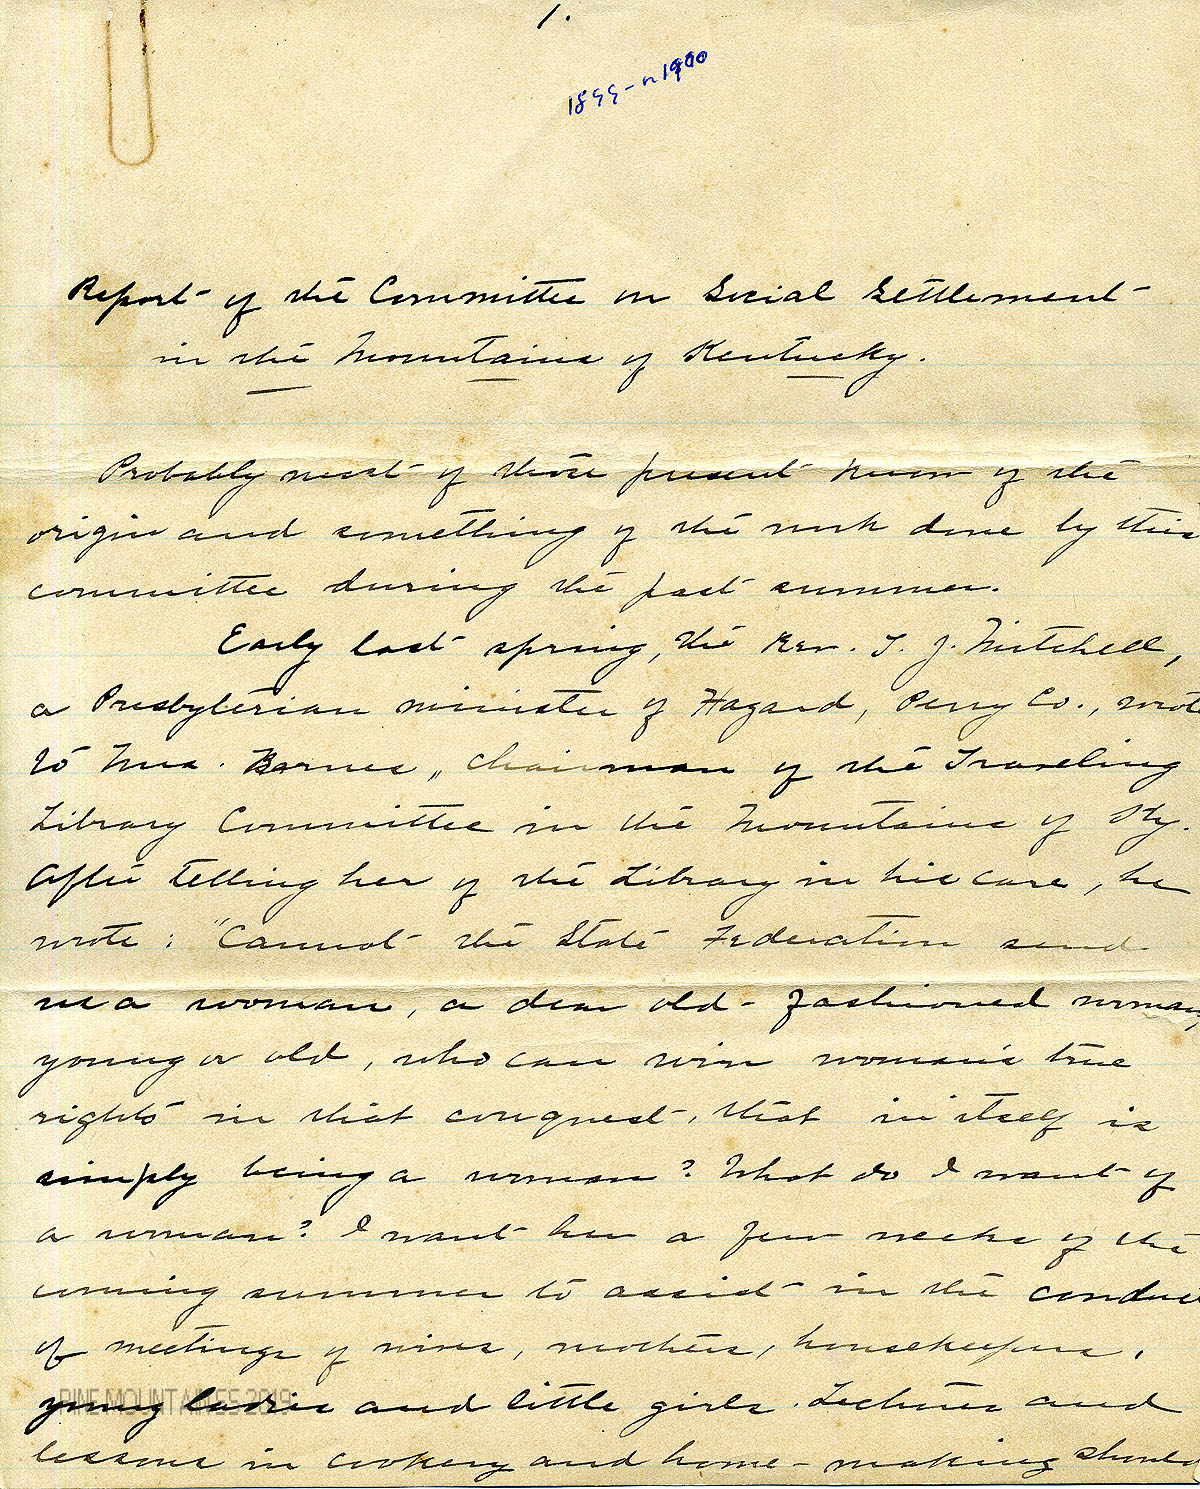 1.
1899-1900
Report of the Committee on Social Settlement
in the Mountains of Kentucky.
Probably most of those present know of the
origin and something of the work done by this
committee during the past summer.
Early last spring, the Rev. T. J. Mitchell,
a Presbyterian minister of Hazard, Perry Co., wrote
to Mrs. Barnes, chairman of the Traveling
Library Committee in the Mountains of Ky.
After telling her of the Library in his care, he
wrote: "Cannot the State Federation send
us a woman, a dear old-fashioned woman,
young or old, who can win woman's true
rights in that conquest, that in itself is
simply being a woman? What do I want of
a woman? I want her a few weeks of the
coming summer to assist in the conduct
of meetings of wives, mothers, housekeepers,
young ladies and little girls. Lectures and
lessons in cookery and home-making should
PINE MOUNTAIN KS 2019